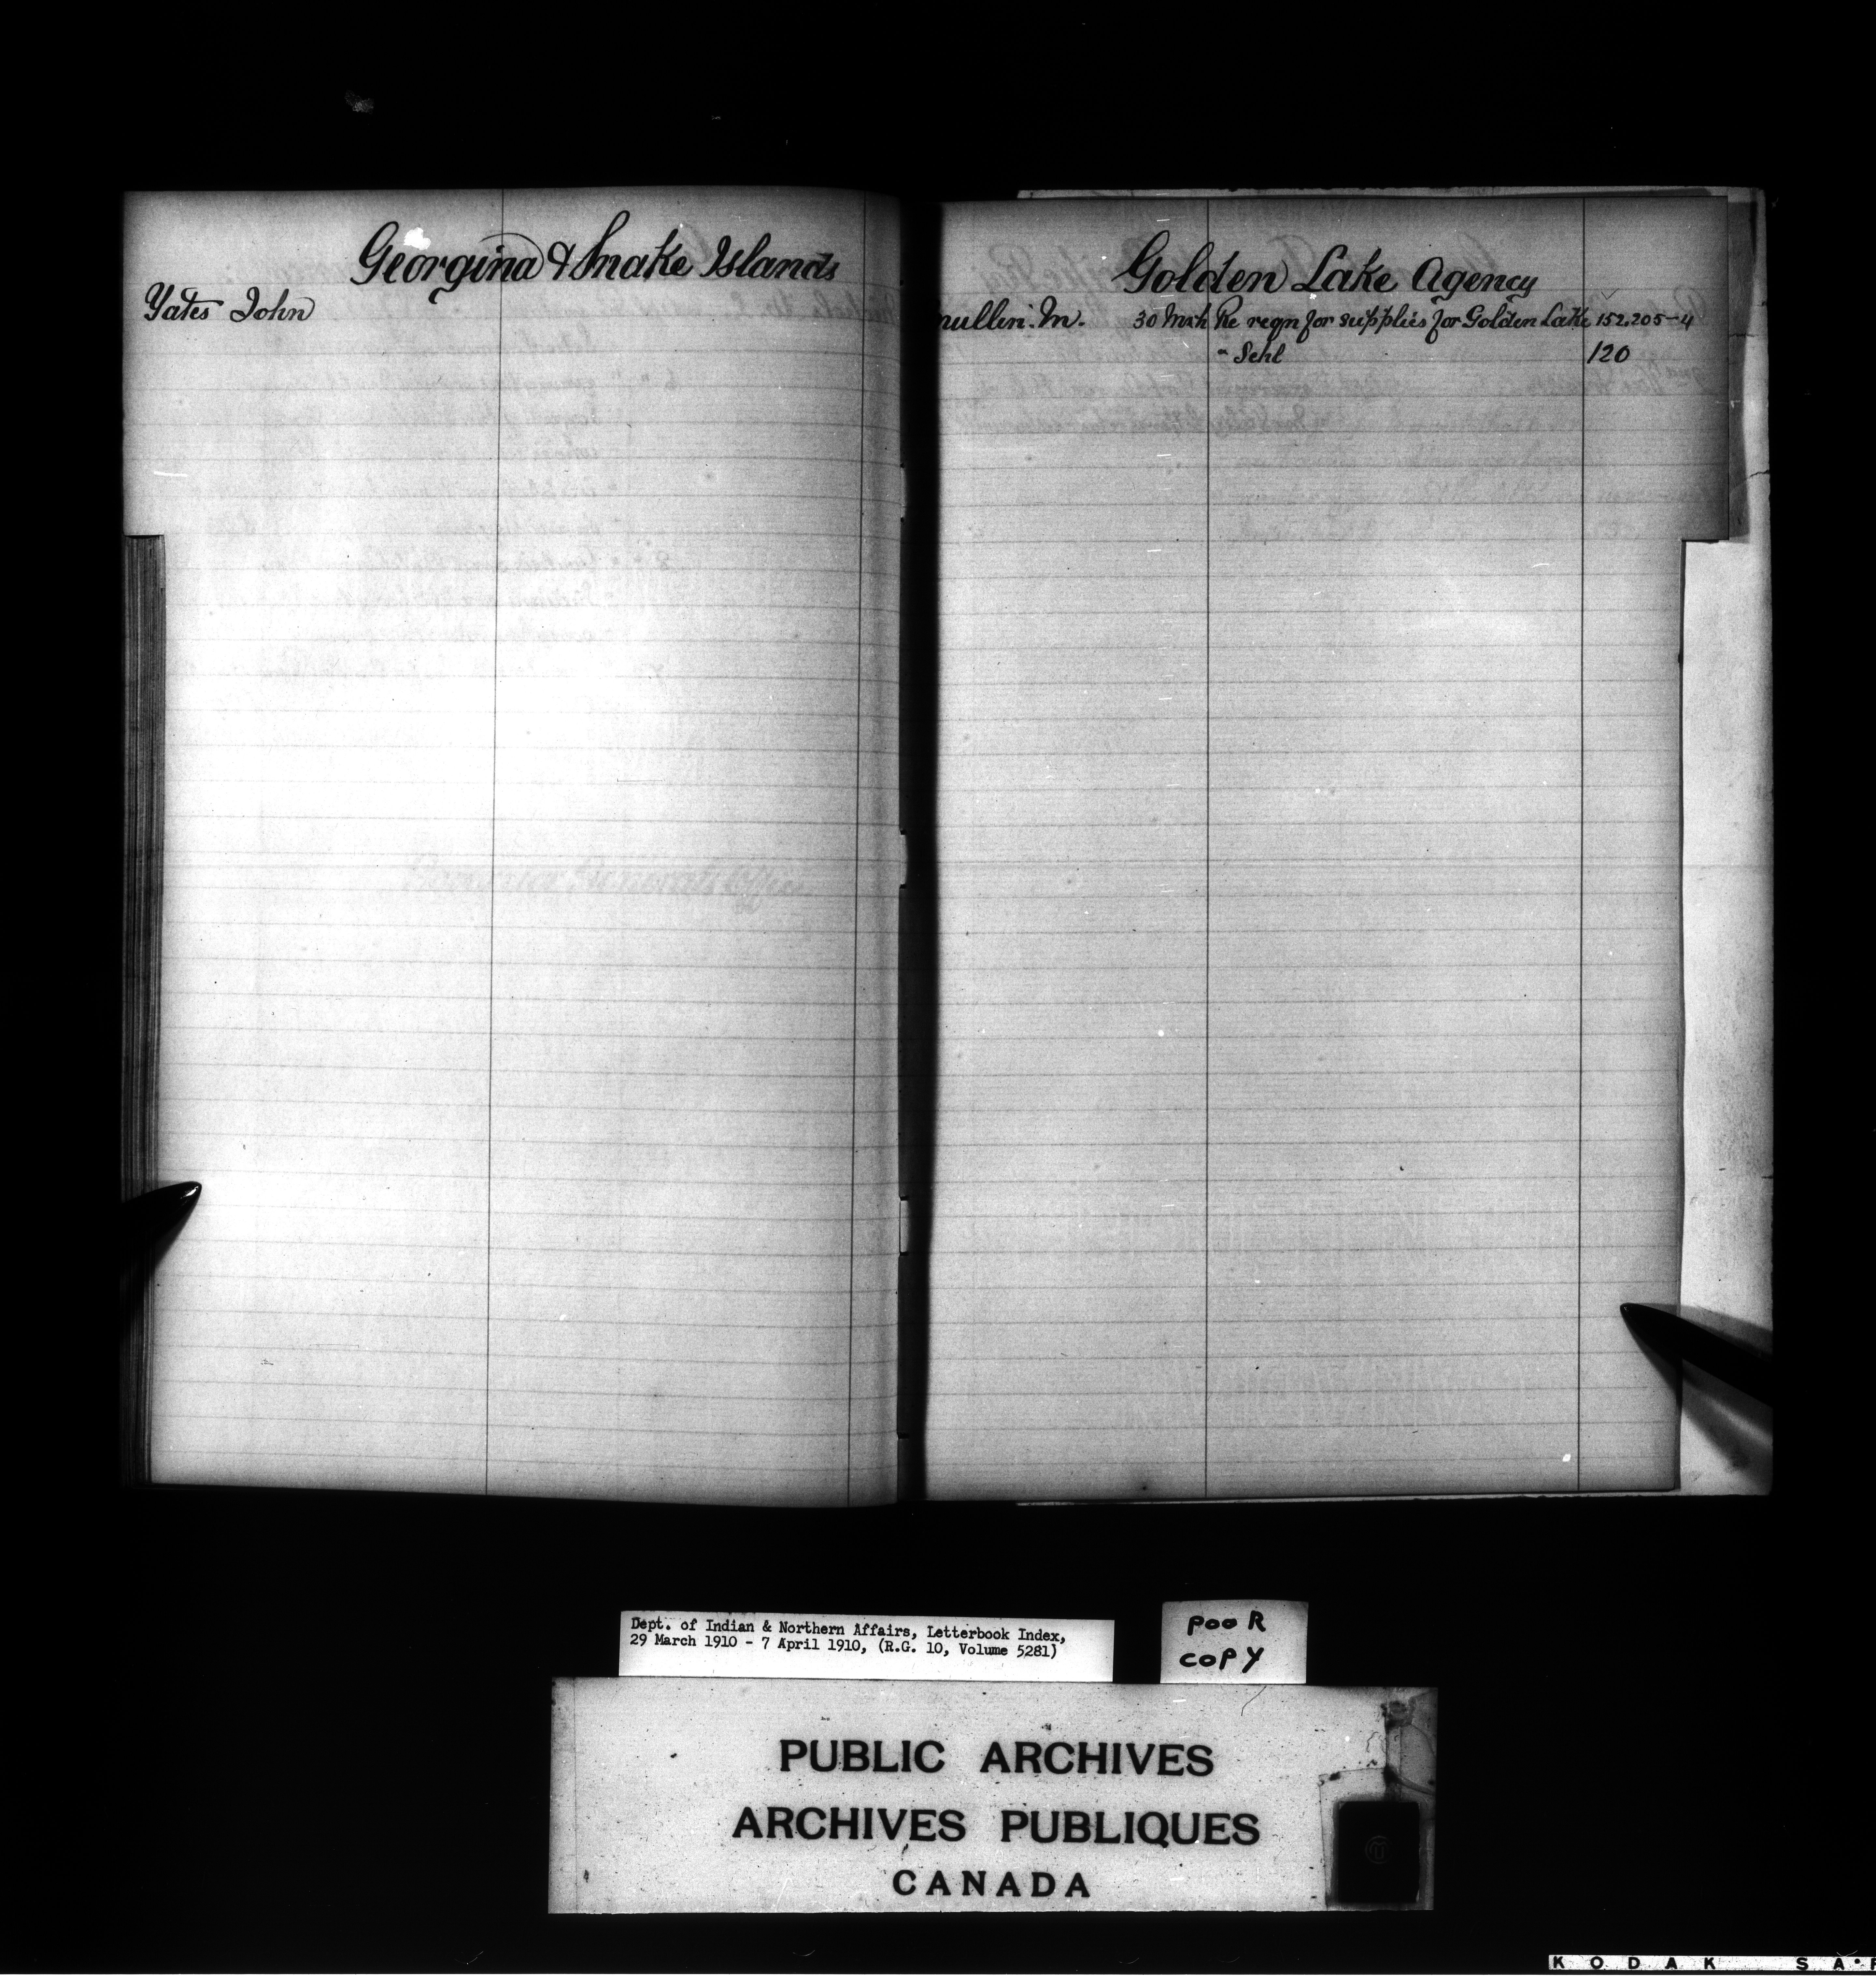 Georgina & Snake Islands
Yates John
Golden Lake Agency
mullin. M. 30 Mch Re reqn for supplies for Golden Lake 152.205-4
" Schl 120
Dept. of Indian & Northern Affairs, Letterbook Index,
29 March 1910 - 7 April 1910, (R.G. 10, Volume 5281)
POOR
COPY
PUBLIC ARCHIVES
ARCHIVES PUBLIQUES
CANADA
KODAK SA